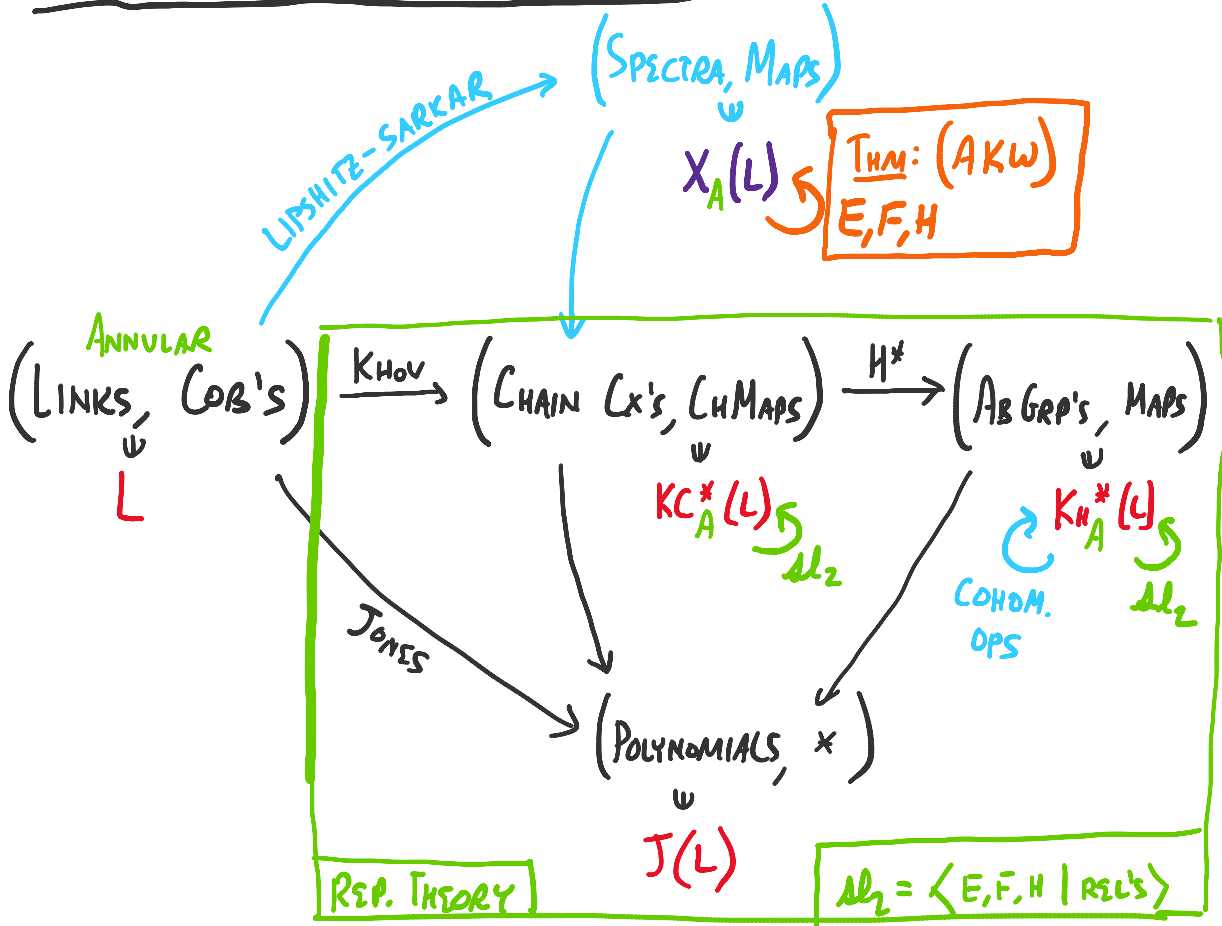 (SPECTRA, MAPS)
LIPSHITZ-SARKAR
X_A(L)
THM: (AKW)
E, F, H
ANNULAR
(LINKS, COB'S)
L
KHOV
(CHAIN CX'S, CHMAPS)
KC*_A(L)
sl_2
H*
(AB GRP'S, MAPS)
KH*_A(L)
COHOM.
OPS
sl_2
JONES
(POLYNOMIALS, *)
J(L)
REP. THEORY
sl_2 = ⟨E, F, H | REL'S⟩